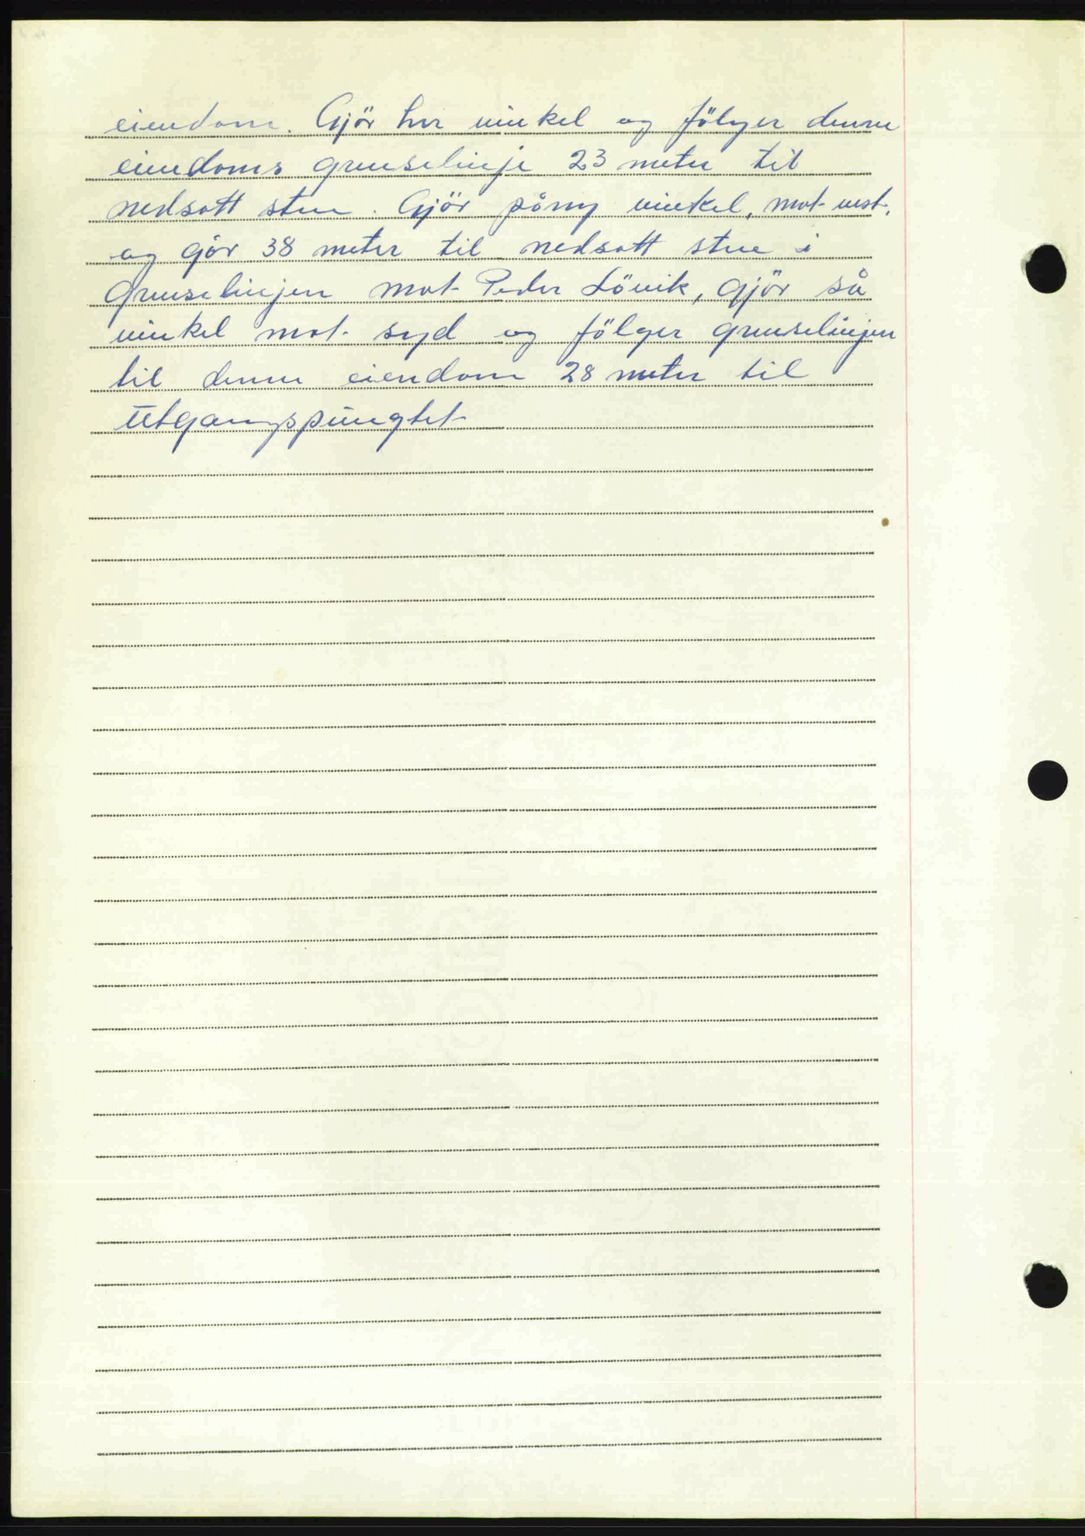 eiendom. Gjör her vinkel og fölger denne
eiendoms grenselinje 23 meter til
nedsatt sten. Gjör påny vinkel, mot vest,
og gör 38 meter til nedsatt sten i
grenselinjen mot Peder Lövik, gjör så
vinkel mot syd og fölger grenselinjen
til denne eiendom 28 meter til
utgangspungtet